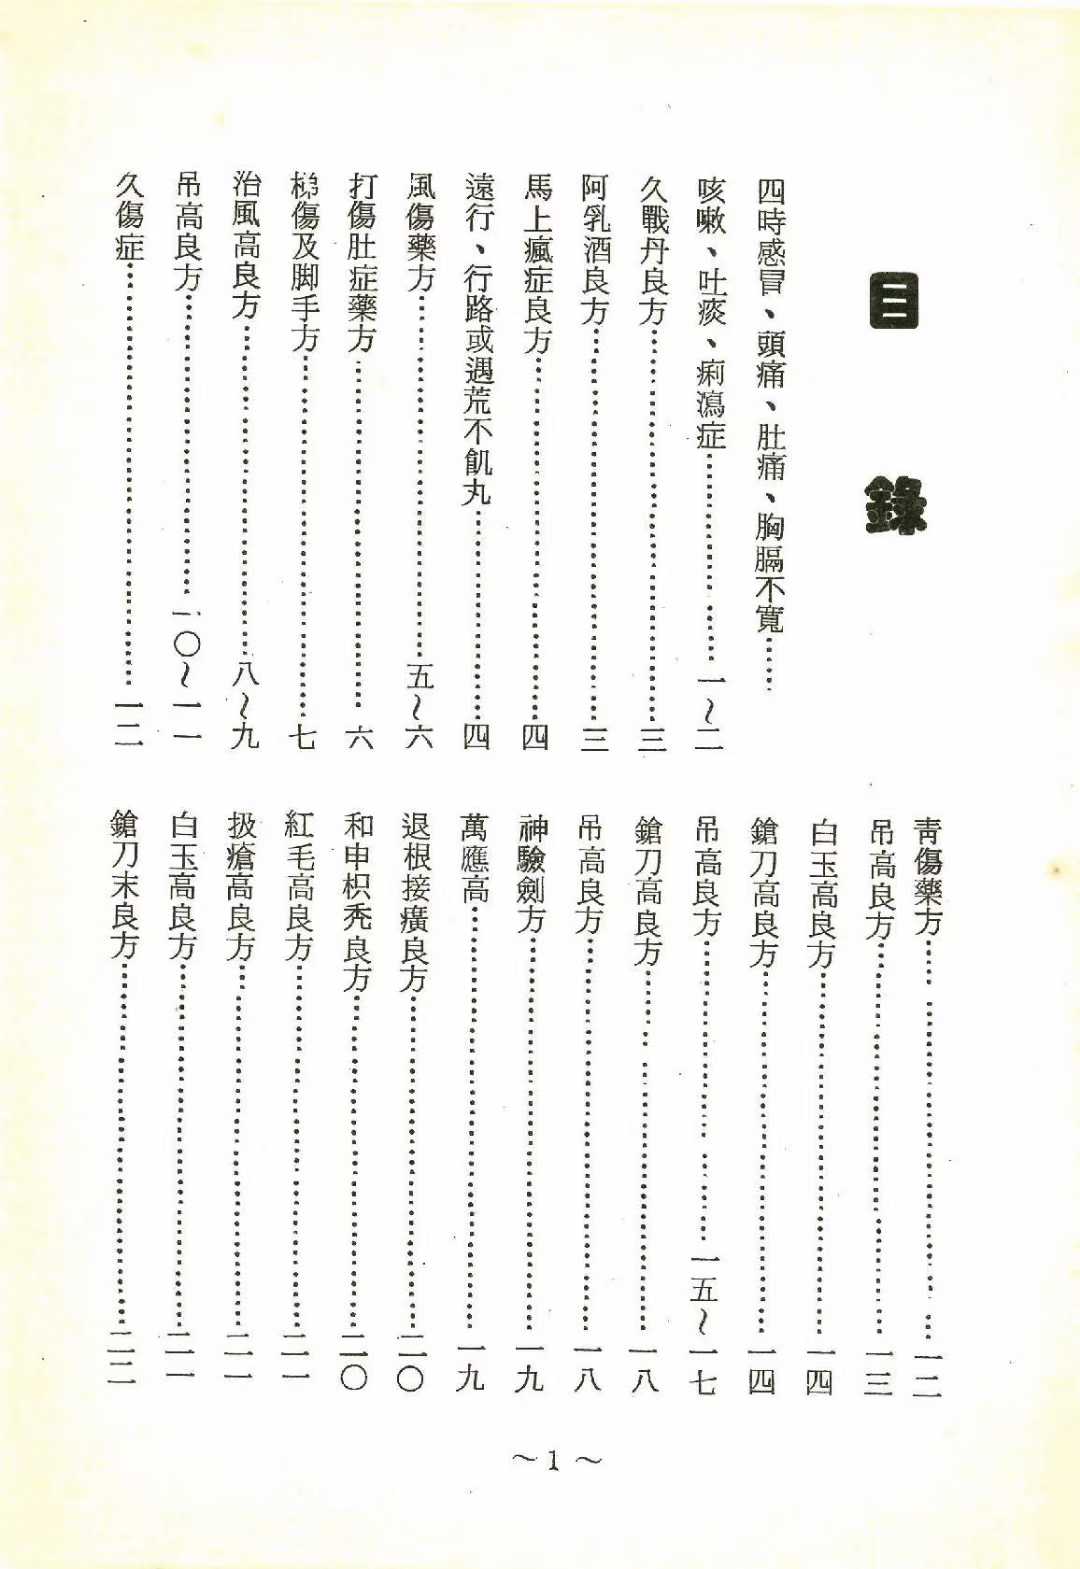 目錄
四時感冒、頭痛、肚痛、胸膈不寬………
咳嗽、吐痰、痢瀉症……………………一～二
久戰丹良方……………………三
阿乳酒良方……………………三
馬上瘋症良方……………………四
遠行、行路或遇荒不飢丸……………………四
風傷藥方……………………五～六
打傷肚症藥方……………………六
梯傷及脚手方……………………七
治風高良方……………………八～九
吊高良方……………………一〇～一一
久傷症……………………一二
青傷藥方……………………一二
吊高良方……………………一三
白玉高良方……………………一四
鎗刀高良方……………………一四
吊高良方……………………一五～一七
鎗刀高良方……………………一八
吊高良方……………………一八
神驗劍方……………………一九
萬應高……………………一九
退根接癀良方……………………二〇
和申枳秃良方……………………二〇
紅毛高良方……………………二一
扱瘡高良方……………………二一
白玉高良方……………………二一
鎗刀末良方……………………二二
～1～